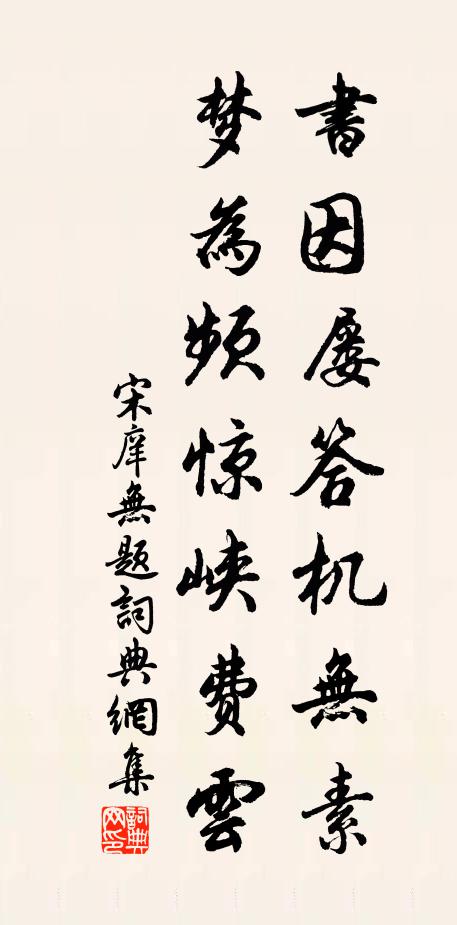 書因屡答机無素
梦為频惊峡费雲
宋庠無题詞典網集
詞典网印